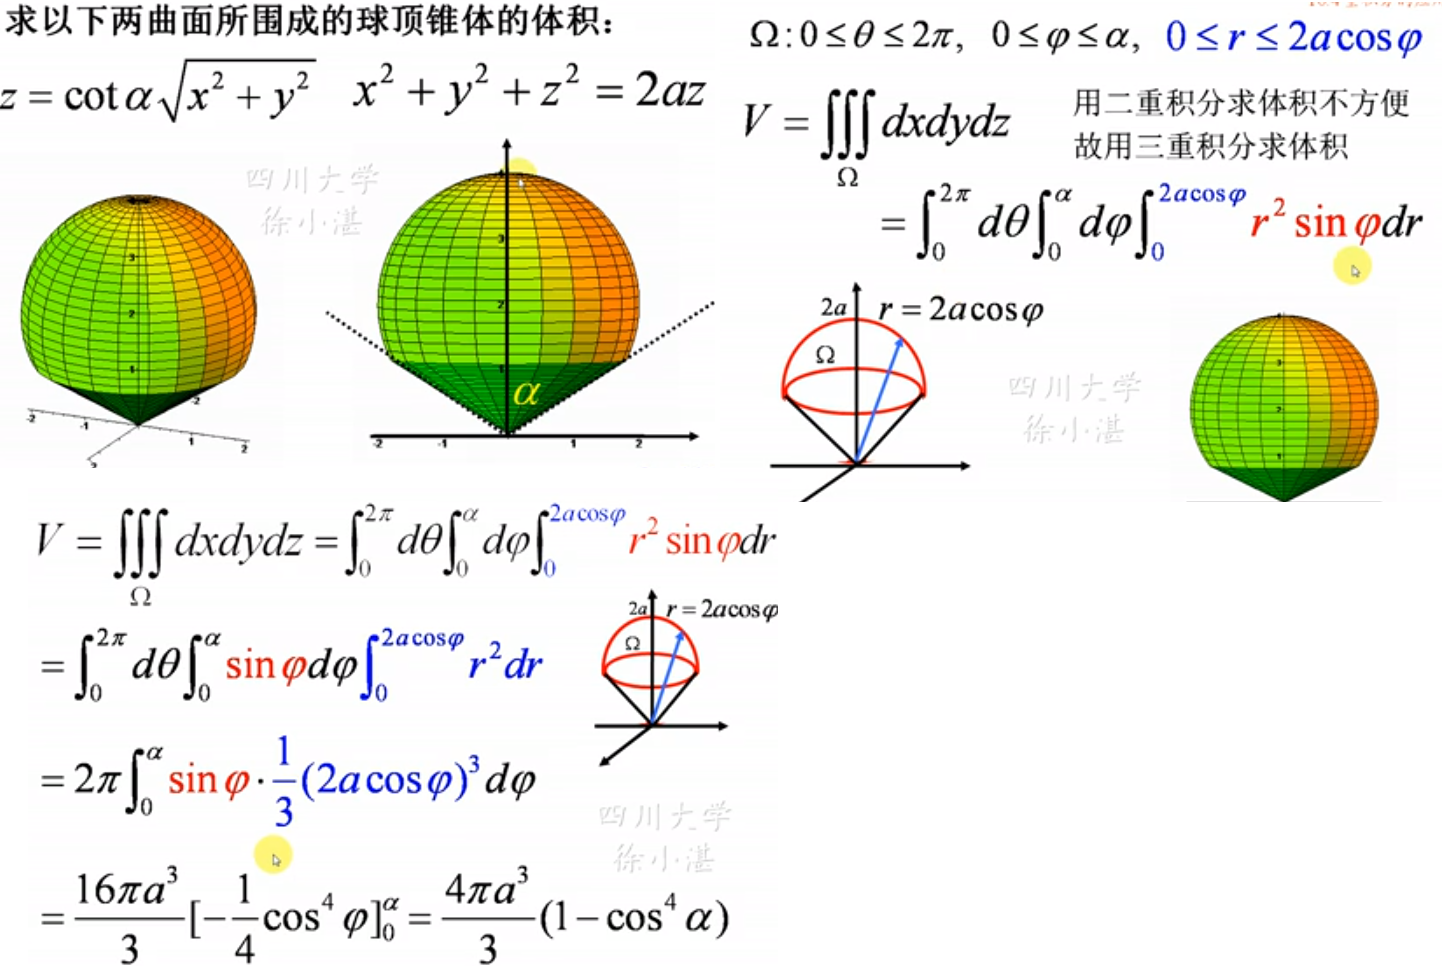 求以下两曲面所围成的球顶锥体的体积：
z = cot α √(x² + y²)   x² + y² + z² = 2az
四川大学
徐小湛
3
2
1
-2
-1
1
2
3
2
1
α
-2
-1
1
2
Ω : 0 ≤ θ ≤ 2π, 0 ≤ φ ≤ α, 0 ≤ r ≤ 2a cos φ
V = ∭_Ω dxdydz
用二重积分求体积不方便
故用三重积分求体积
= ∫₀^{2π} dθ ∫₀^{α} dφ ∫₀^{2a cos φ} r² sin φ dr
2a r = 2a cos φ
Ω
四川大学
徐小湛
3
2
1
V = ∭_Ω dxdydz = ∫₀^{2π} dθ ∫₀^{α} dφ ∫₀^{2a cos φ} r² sin φ dr
2a r = 2a cos φ
Ω
= ∫₀^{2π} dθ ∫₀^{α} sin φ dφ ∫₀^{2a cos φ} r² dr
= 2π ∫₀^{α} sin φ · 1/3 (2a cos φ)³ dφ
四川大学
徐小湛
= 16πa³/3 [−1/4 cos⁴ φ]₀^{α} = 4πa³/3 (1 − cos⁴ α)